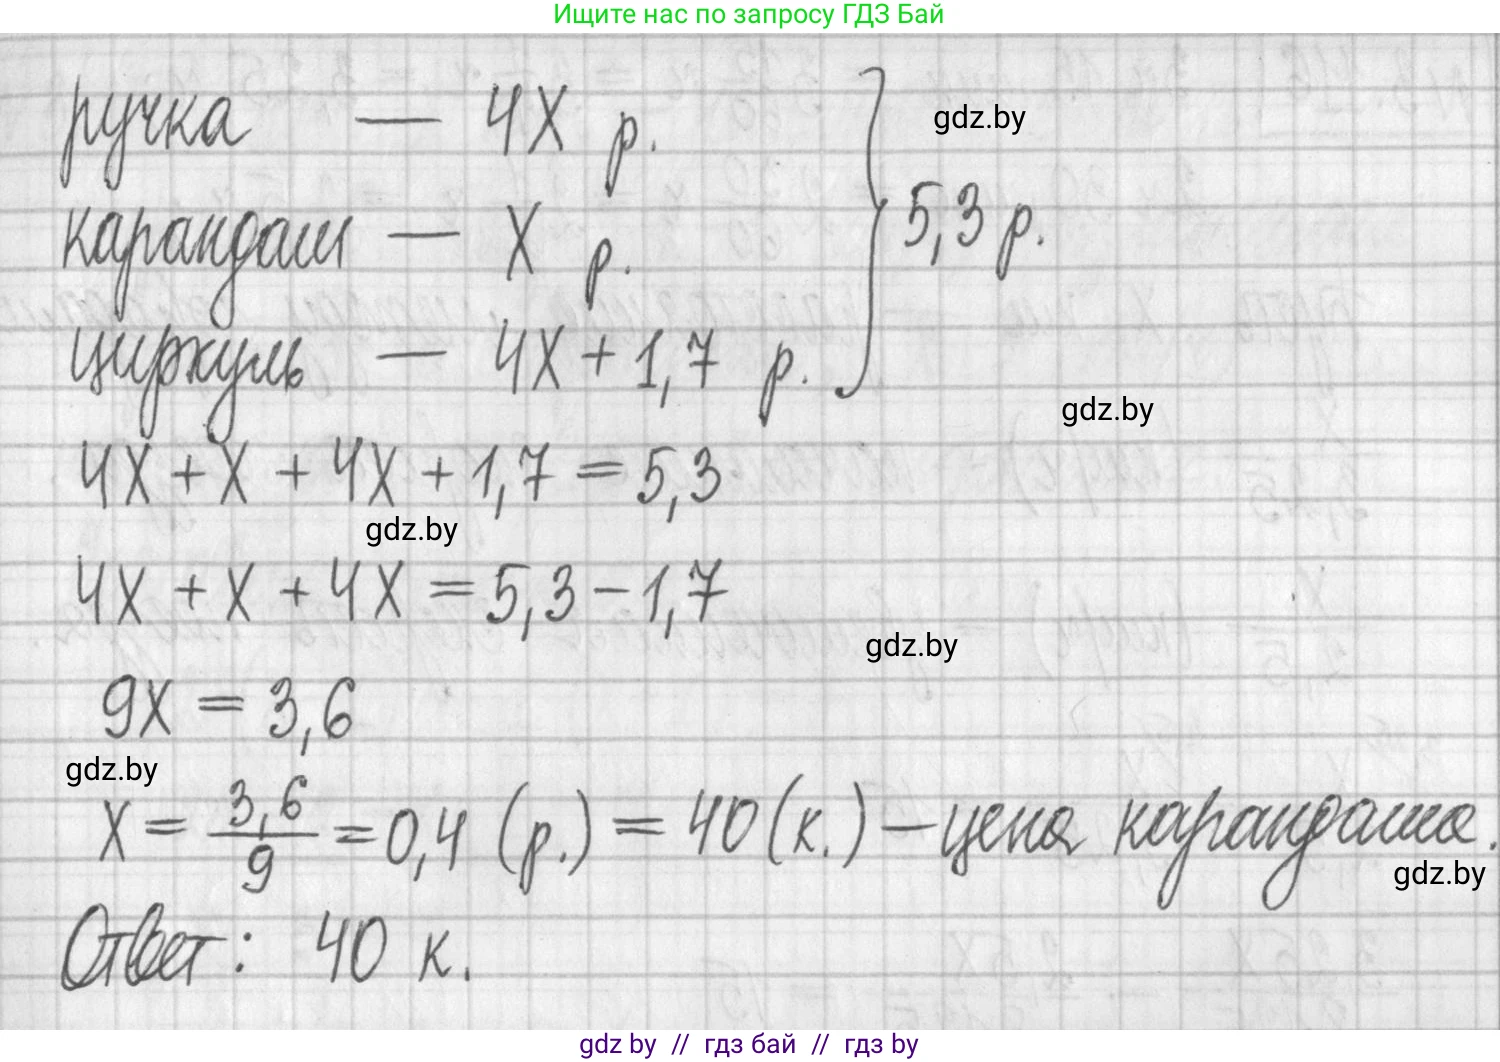 Ищите нас по запросу ГДЗ Бай
ручка — 4X р.
gdz.by
карандаш — X р.
5,3 р.
циркуль — 4X + 1,7 р.
gdz.by
4X + X + 4X + 1,7 = 5,3
gdz.by
4X + X + 4X = 5,3 - 1,7
gdz.by
9X = 3,6
gdz.by
X = 3,6/9 = 0,4 (р.) = 40 (к.) — цена карандаша.
gdz.by
Ответ: 40 к.
gdz.by // гдз бай // гдз by